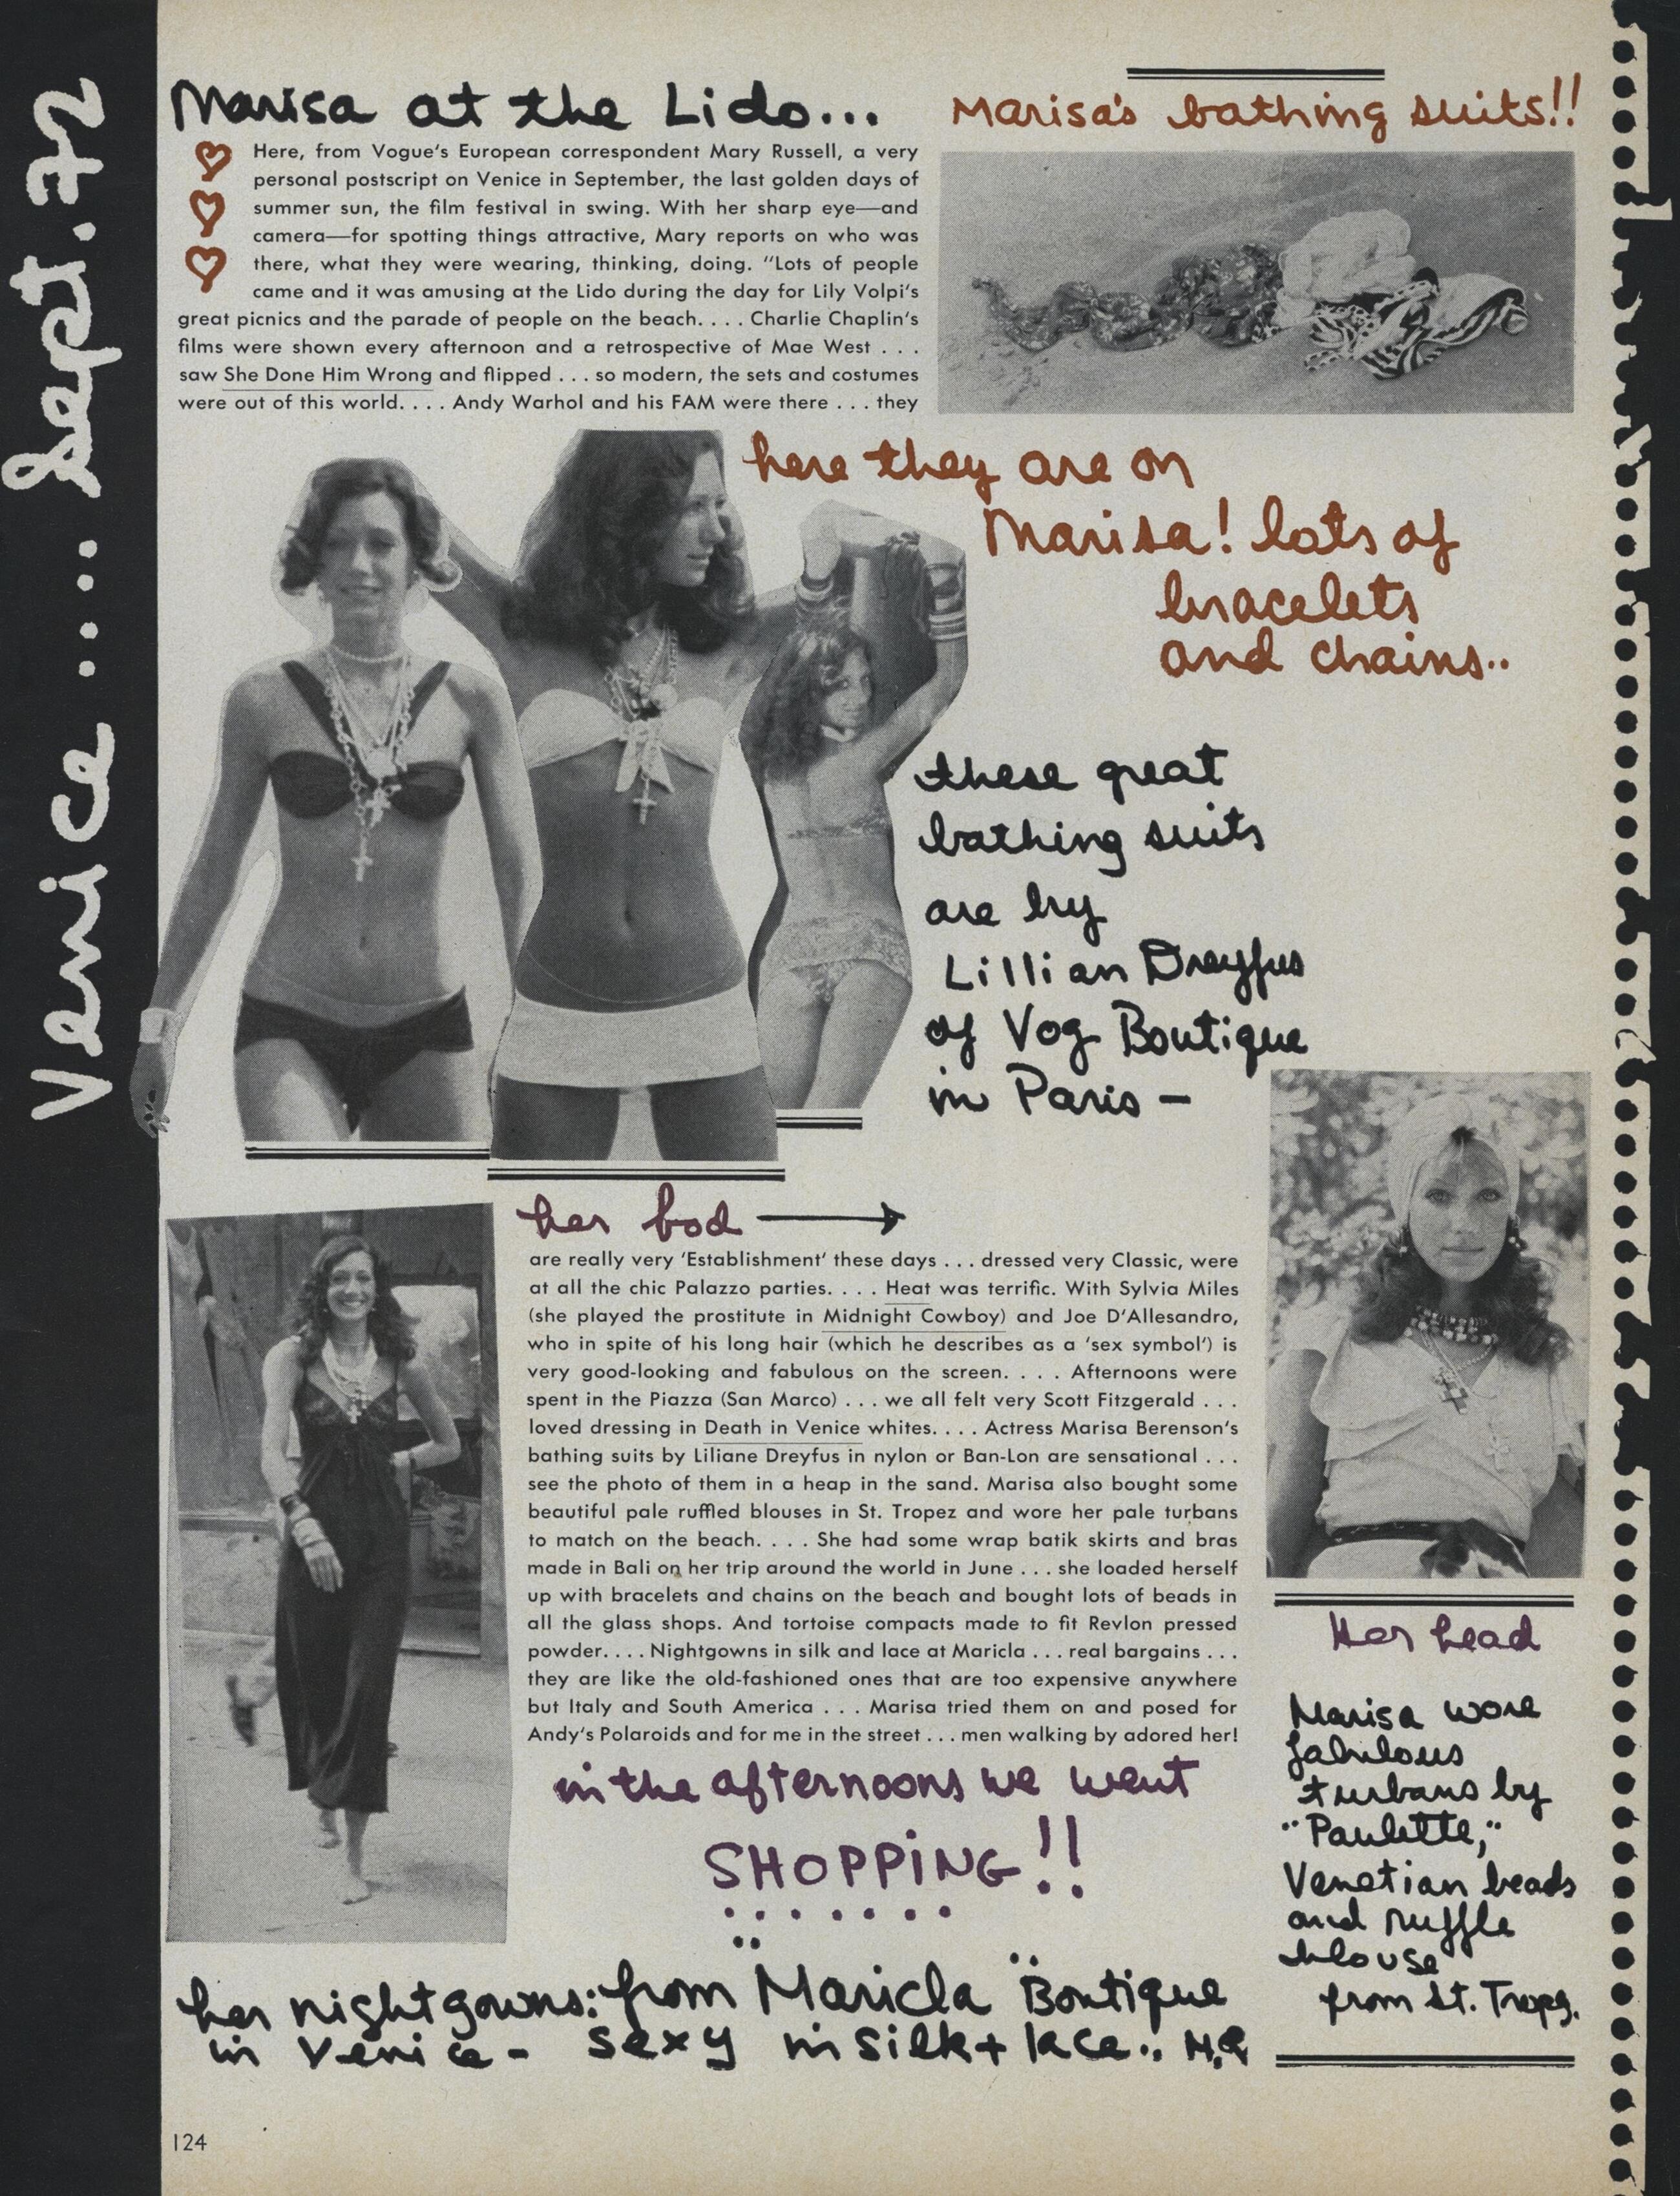 Venice .... Sept. 72
Marisa at the Lido...
Here, from Vogue's European correspondent Mary Russell, a very
personal postscript on Venice in September, the last golden days of
summer sun, the film festival in swing. With her sharp eye—and
camera—for spotting things attractive, Mary reports on who was
there, what they were wearing, thinking, doing. "Lots of people
came and it was amusing at the Lido during the day for Lily Volpi's
great picnics and the parade of people on the beach. . . . Charlie Chaplin's
films were shown every afternoon and a retrospective of Mae West . . .
saw She Done Him Wrong and flipped . . . so modern, the sets and costumes
were out of this world. . . . Andy Warhol and his FAM were there . . . they
Marisa's bathing suits!!
here they are on
Marisa! lots of
bracelets
and chains..
these great
bathing suits
are by
Lillian Dreyfus
of Vog Boutique
in Paris –
her bod
are really very 'Establishment' these days . . . dressed very Classic, were
at all the chic Palazzo parties. . . . Heat was terrific. With Sylvia Miles
(she played the prostitute in Midnight Cowboy) and Joe D'Allesandro,
who in spite of his long hair (which he describes as a 'sex symbol') is
very good-looking and fabulous on the screen. . . . Afternoons were
spent in the Piazza (San Marco) . . . we all felt very Scott Fitzgerald . . .
loved dressing in Death in Venice whites. . . . Actress Marisa Berenson's
bathing suits by Liliane Dreyfus in nylon or Ban-Lon are sensational . . .
see the photo of them in a heap in the sand. Marisa also bought some
beautiful pale ruffled blouses in St. Tropez and wore her pale turbans
to match on the beach. . . . She had some wrap batik skirts and bras
made in Bali on her trip around the world in June . . . she loaded herself
up with bracelets and chains on the beach and bought lots of beads in
all the glass shops. And tortoise compacts made to fit Revlon pressed
powder. . . . Nightgowns in silk and lace at Maricla . . . real bargains . . .
they are like the old-fashioned ones that are too expensive anywhere
but Italy and South America . . . Marisa tried them on and posed for
Andy's Polaroids and for me in the street . . . men walking by adored her!
in the afternoons we went
SHOPPING!!
Her head
Marisa wore
fabulous
turbans by
"Paulette,"
Venetian beads
and ruffle
blouse
from St. Tropez.
her nightgowns: from "Maricla" Boutique
in Venice - sexy in silk + lace.. M.R
124